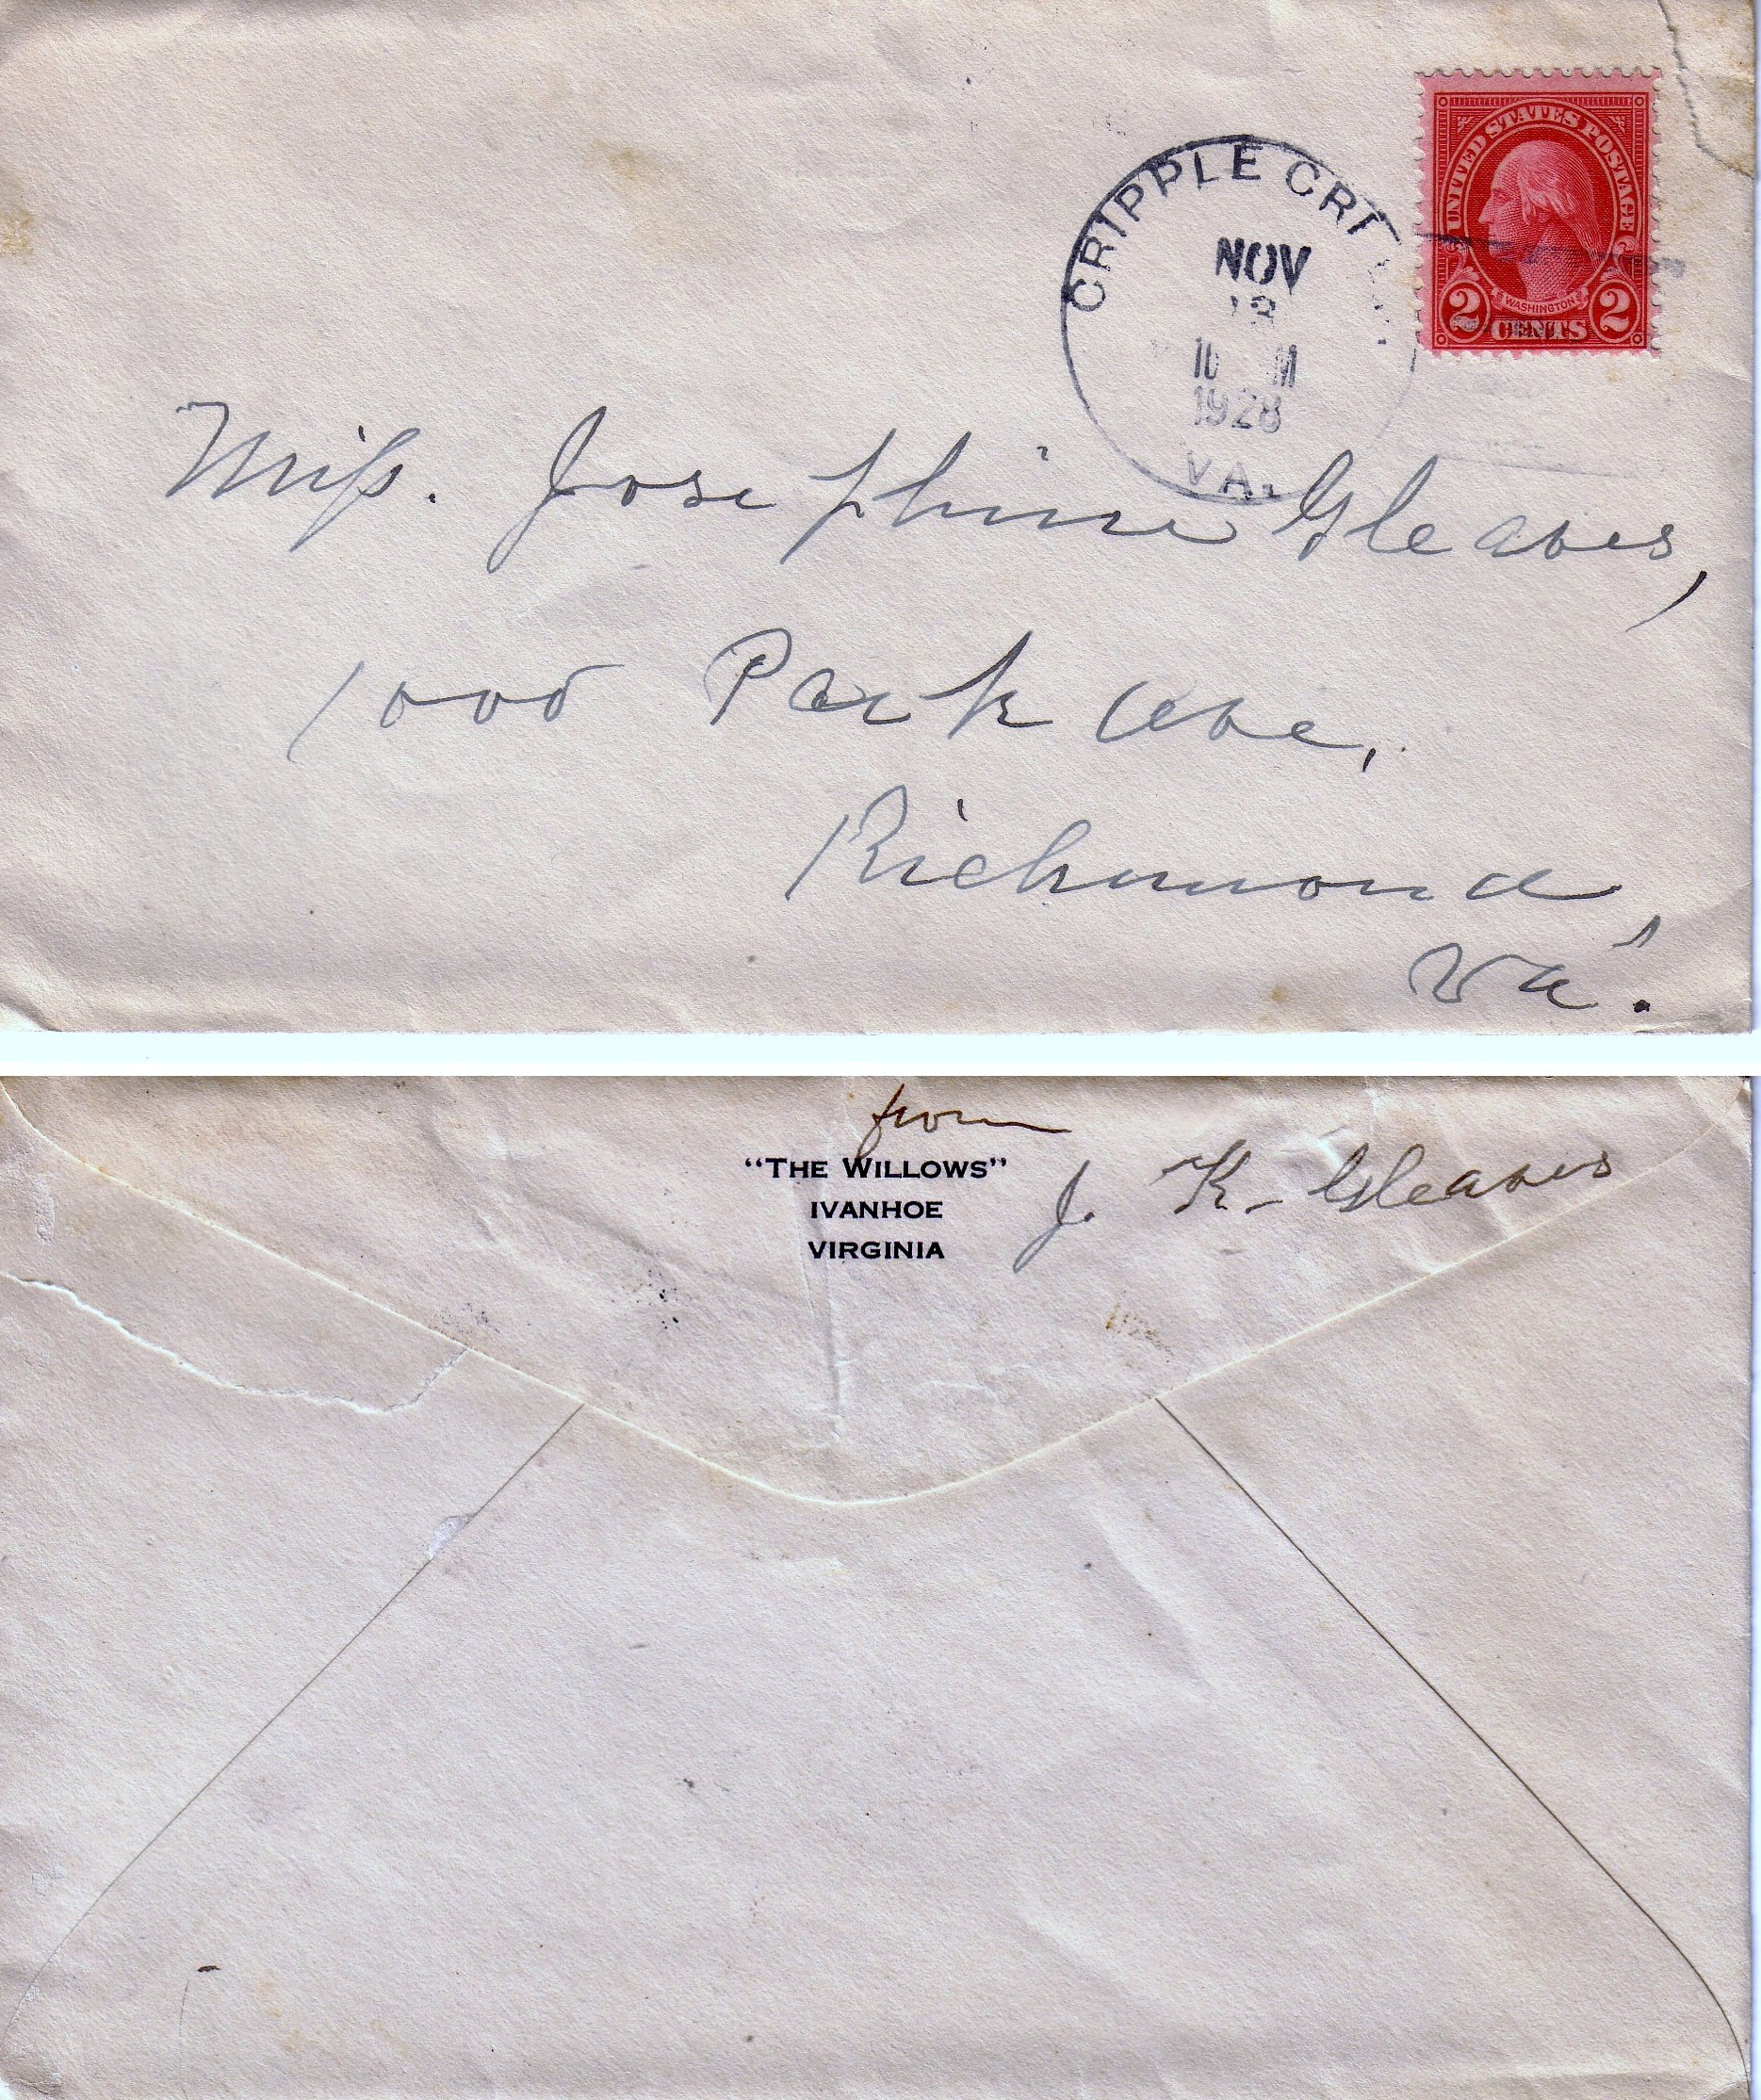 UNITED STATES POSTAGE
WASHINGTON
2 CENTS 2
CRIPPLE CRE
NOV
13
10 M
1928
VA.
Miss. Josephine Gleaves,
1000 Park Ave,
Richmond,
Va.
from
"THE WILLOWS"
J. K. Gleaves
IVANHOE
VIRGINIA